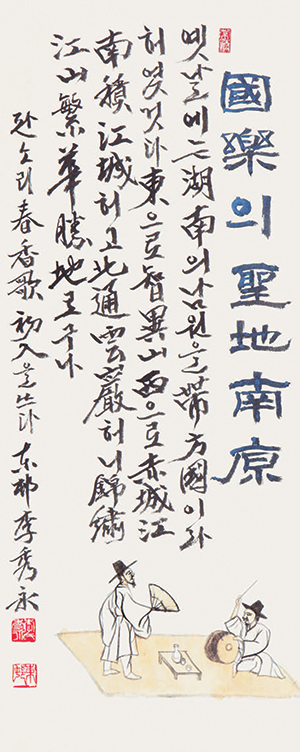 國樂의 聖地 南原
옛날에는 湖南의 남원을 帶方國이라
허엿것다 東으로 智異山 西으로 赤城江
南積江城허고 北通雲巖허니 錦繡
江山 繁華勝地로구나
판소리 春香歌 初入을 쓰다 李秀永